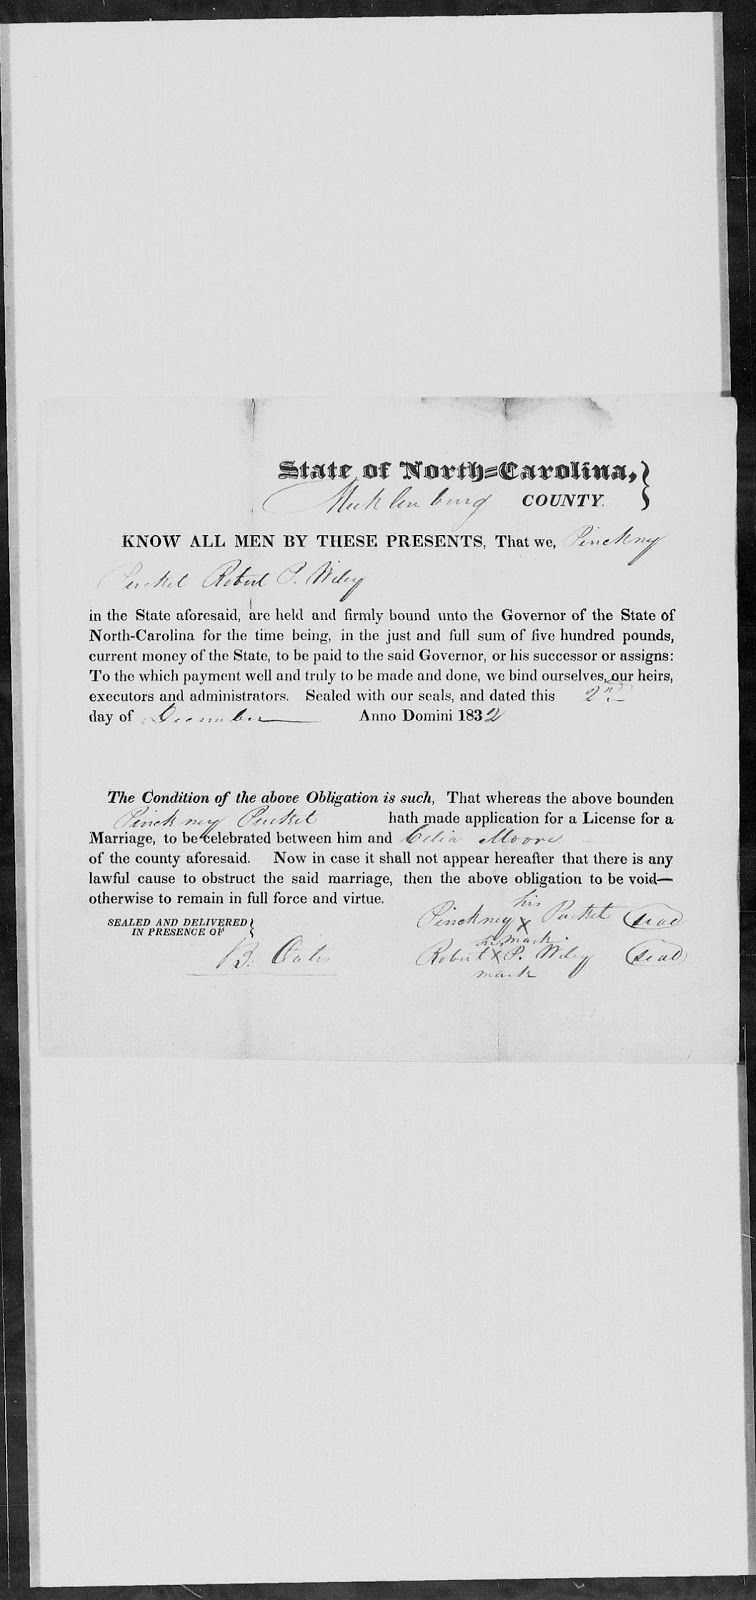 State of North=Carolina,
Mecklenburg COUNTY.
KNOW ALL MEN BY THESE PRESENTS, That we, Pinckney
Pucket Robert P. Wiley
in the State aforesaid, are held and firmly bound unto the Governor of the State of
North-Carolina for the time being, in the just and full sum of five hundred pounds,
current money of the State, to be paid to the said Governor, or his successor or assigns:
To the which payment well and truly to be made and done, we bind ourselves, our heirs,
executors and administrators. Sealed with our seals, and dated this 2nd
day of December Anno Domini 1832
The Condition of the above Obligation is such, That whereas the above bounden
Pinckney Pucket hath made application for a License for a
Marriage, to be celebrated between him and Celia Moore
of the county aforesaid. Now in case it shall not appear hereafter that there is any
lawful cause to obstruct the said marriage, then the above obligation to be void—
otherwise to remain in full force and virtue.
his
SEALED AND DELIVERED Pinckney X Pucket (seal)
IN PRESENCE OF his mark
B. Oates Robert X P. Wiley (seal)
mark